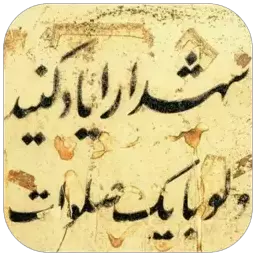 شهدا را یاد کنید
ولو با یک صلوات